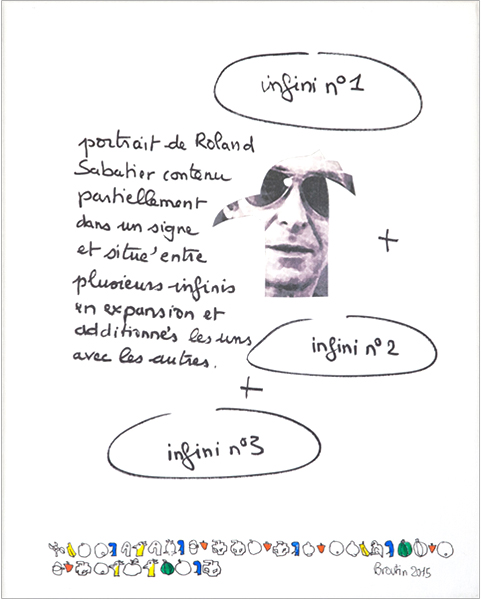 infini n°1
portrait de Roland
Sabatier contenu
partiellement
dans un signe
et situé entre
plusieurs infinis
en expansion et
additionnés les uns
avec les autres.
+
infini n°2
+
infini n°3
Broutin 2015